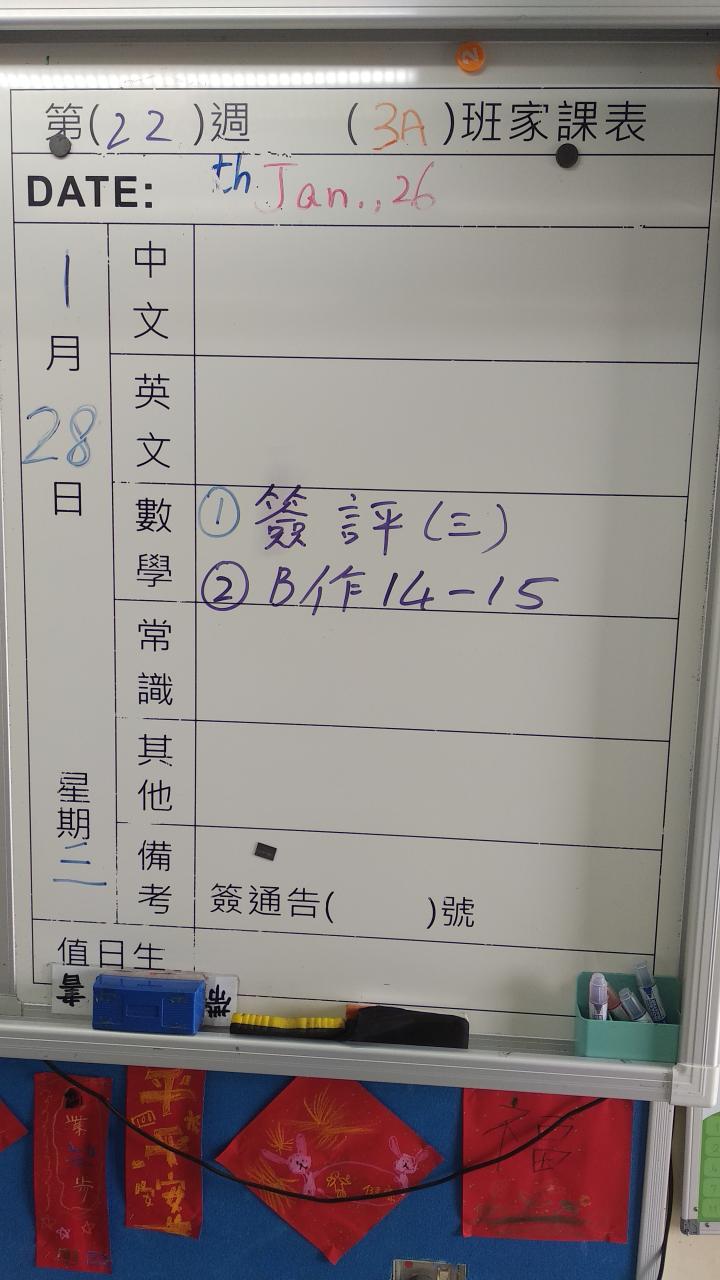 第(22)週 (3A)班家課表
DATE: th Jan.,26
1月28日
星期三
中文
英文
數學
① 簽評(三)
② B作14-15
常識
其他
備考
簽通告( )號
值日生
福